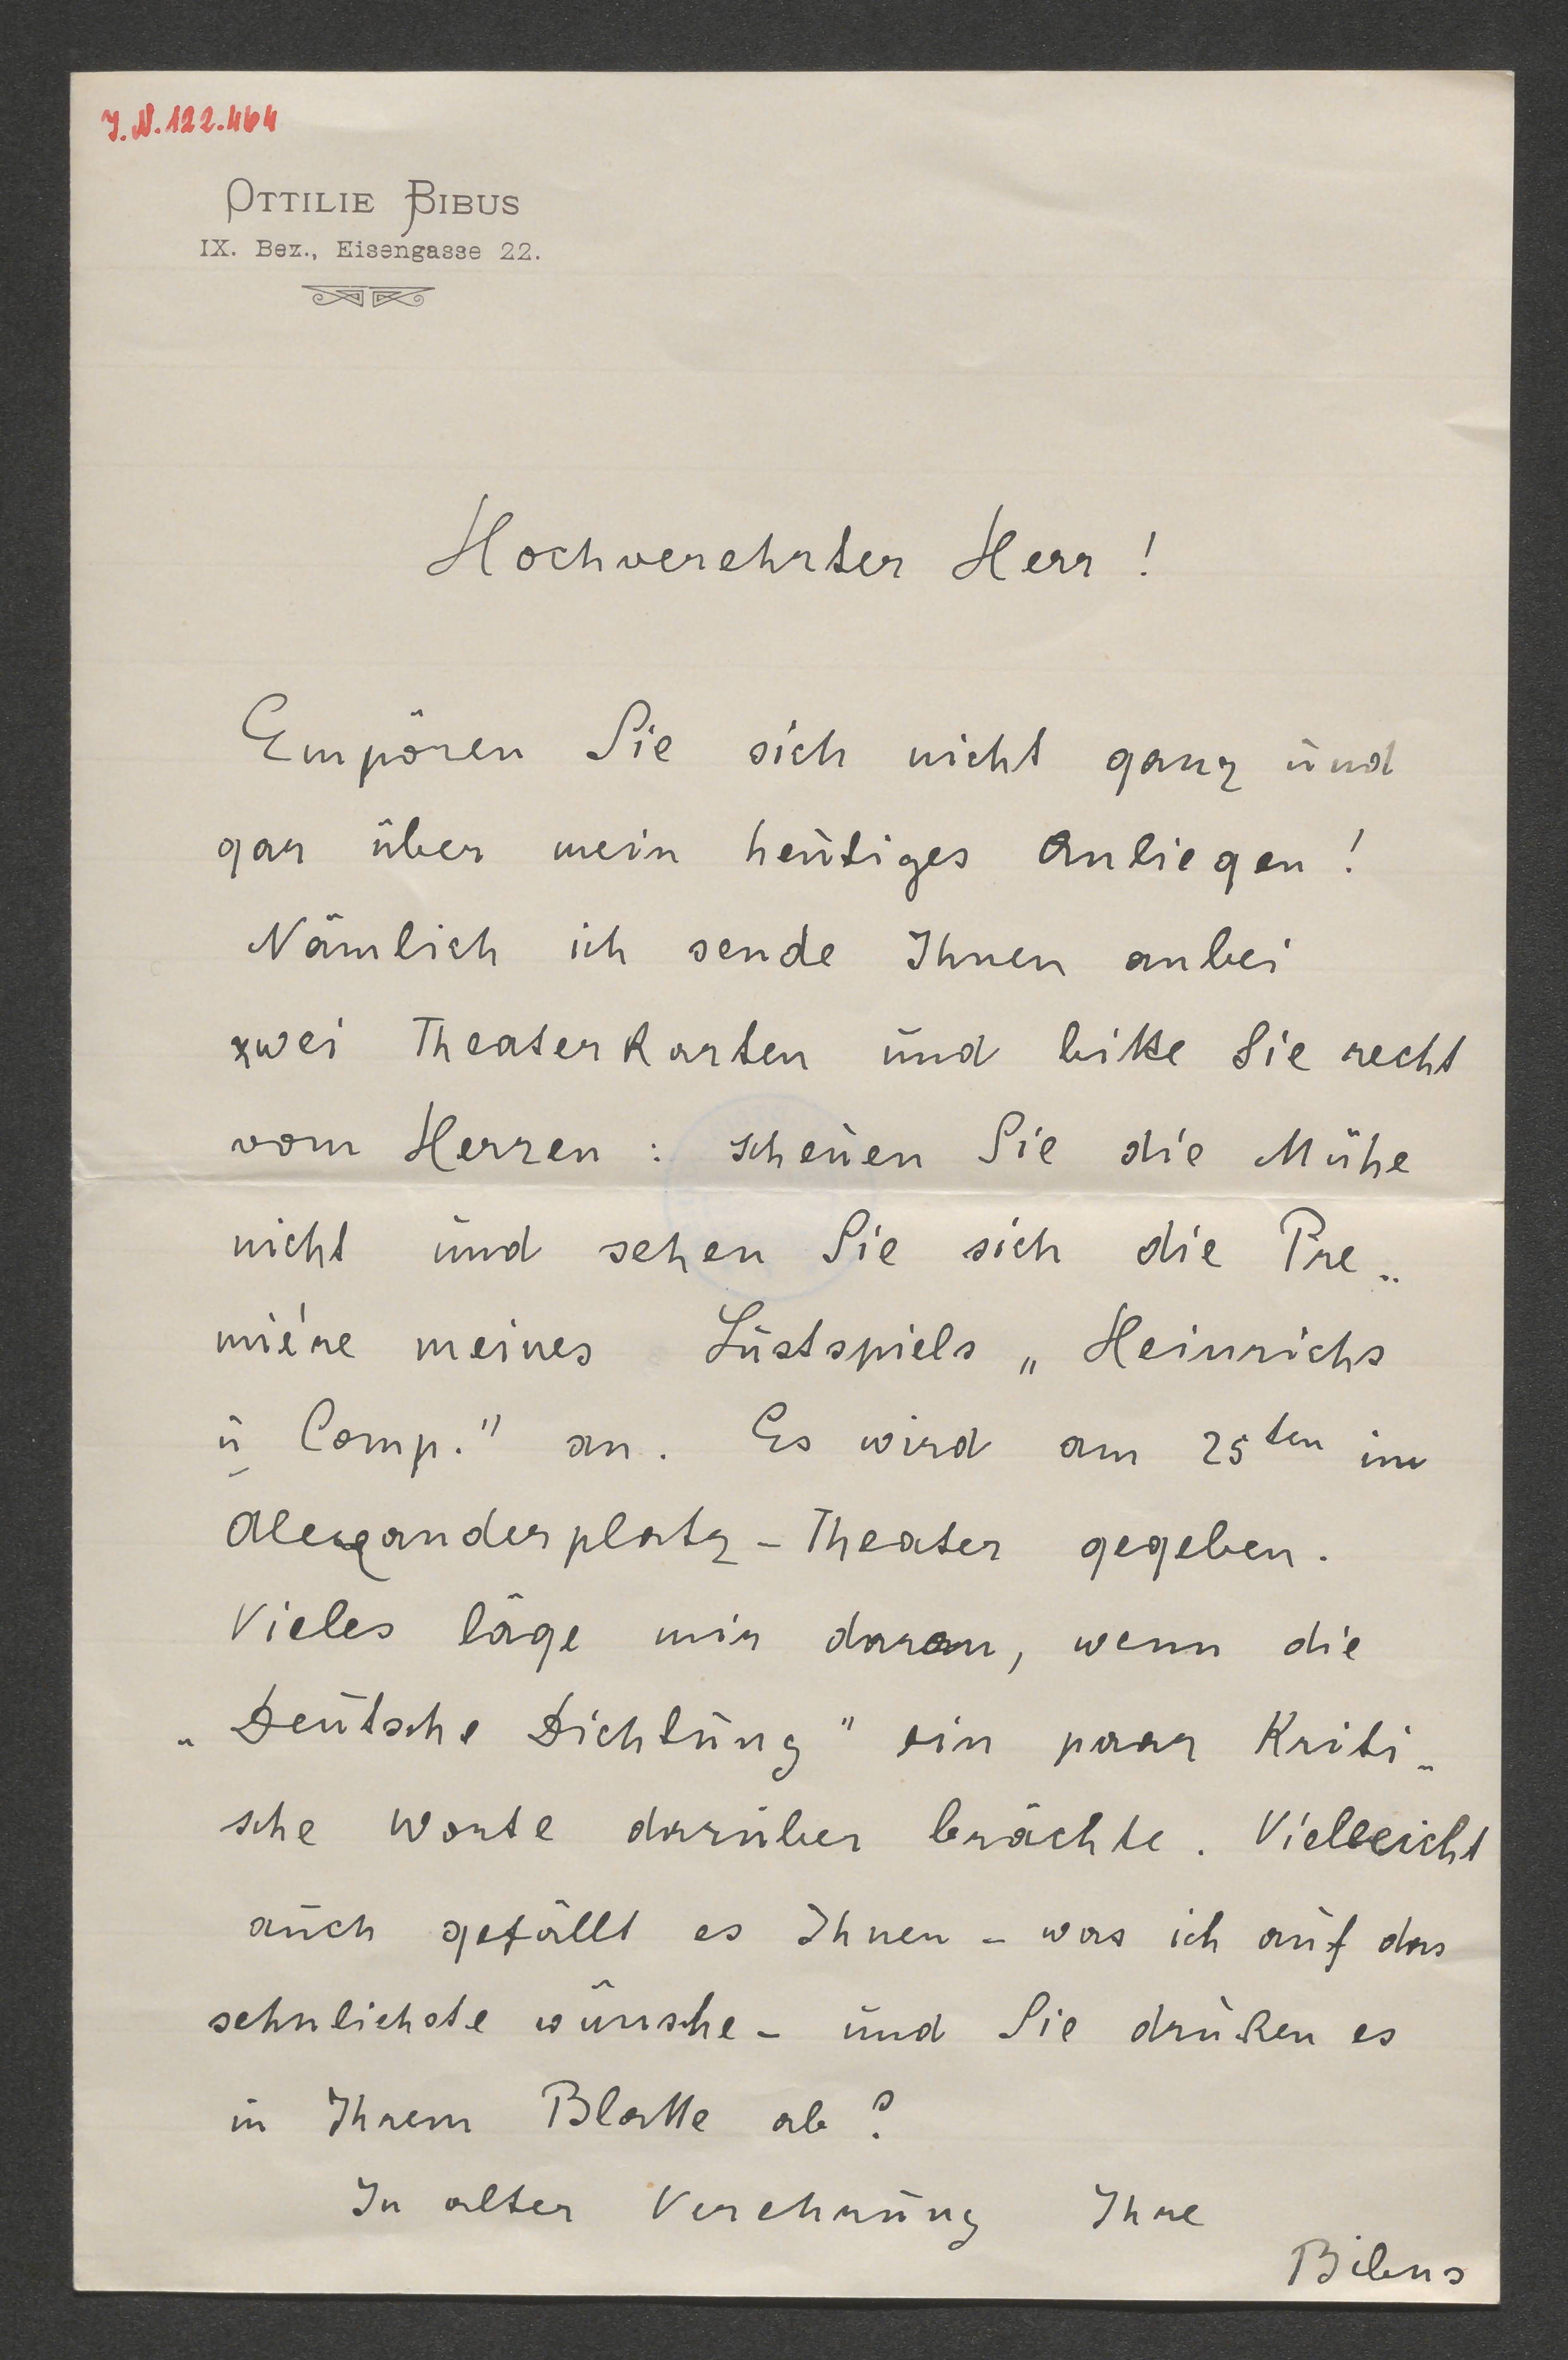 J.N.122.464
OTTILIE BIBUS
IX. Bez., Eisengasse 22.
Hochverehrter Herr!
Empören Sie sich nicht ganz und
gar über mein heutiges Anliegen!
Nämlich ich sende Ihnen anbei
zwei Theaterkarten und bitte Sie recht
vom Herzen: scheuen Sie die Mühe
nicht und sehen Sie sich die Pre-
miére meines Lustspiels „Heinrichs
u Comp." an. Es wird am 25ten im
Alexanderplatz-Theater gegeben.
Vieles läge mir daran, wenn die
„Deutsche Dichtung" ein paar Kriti-
sche Worte darüber brächte. Vielleicht
auch gefällt es Ihnen - was ich auf das
sehnlichste wünsche - und Sie druken es
in Ihrem Blatte ab?
In alter Verehrung Ihre
Bibus